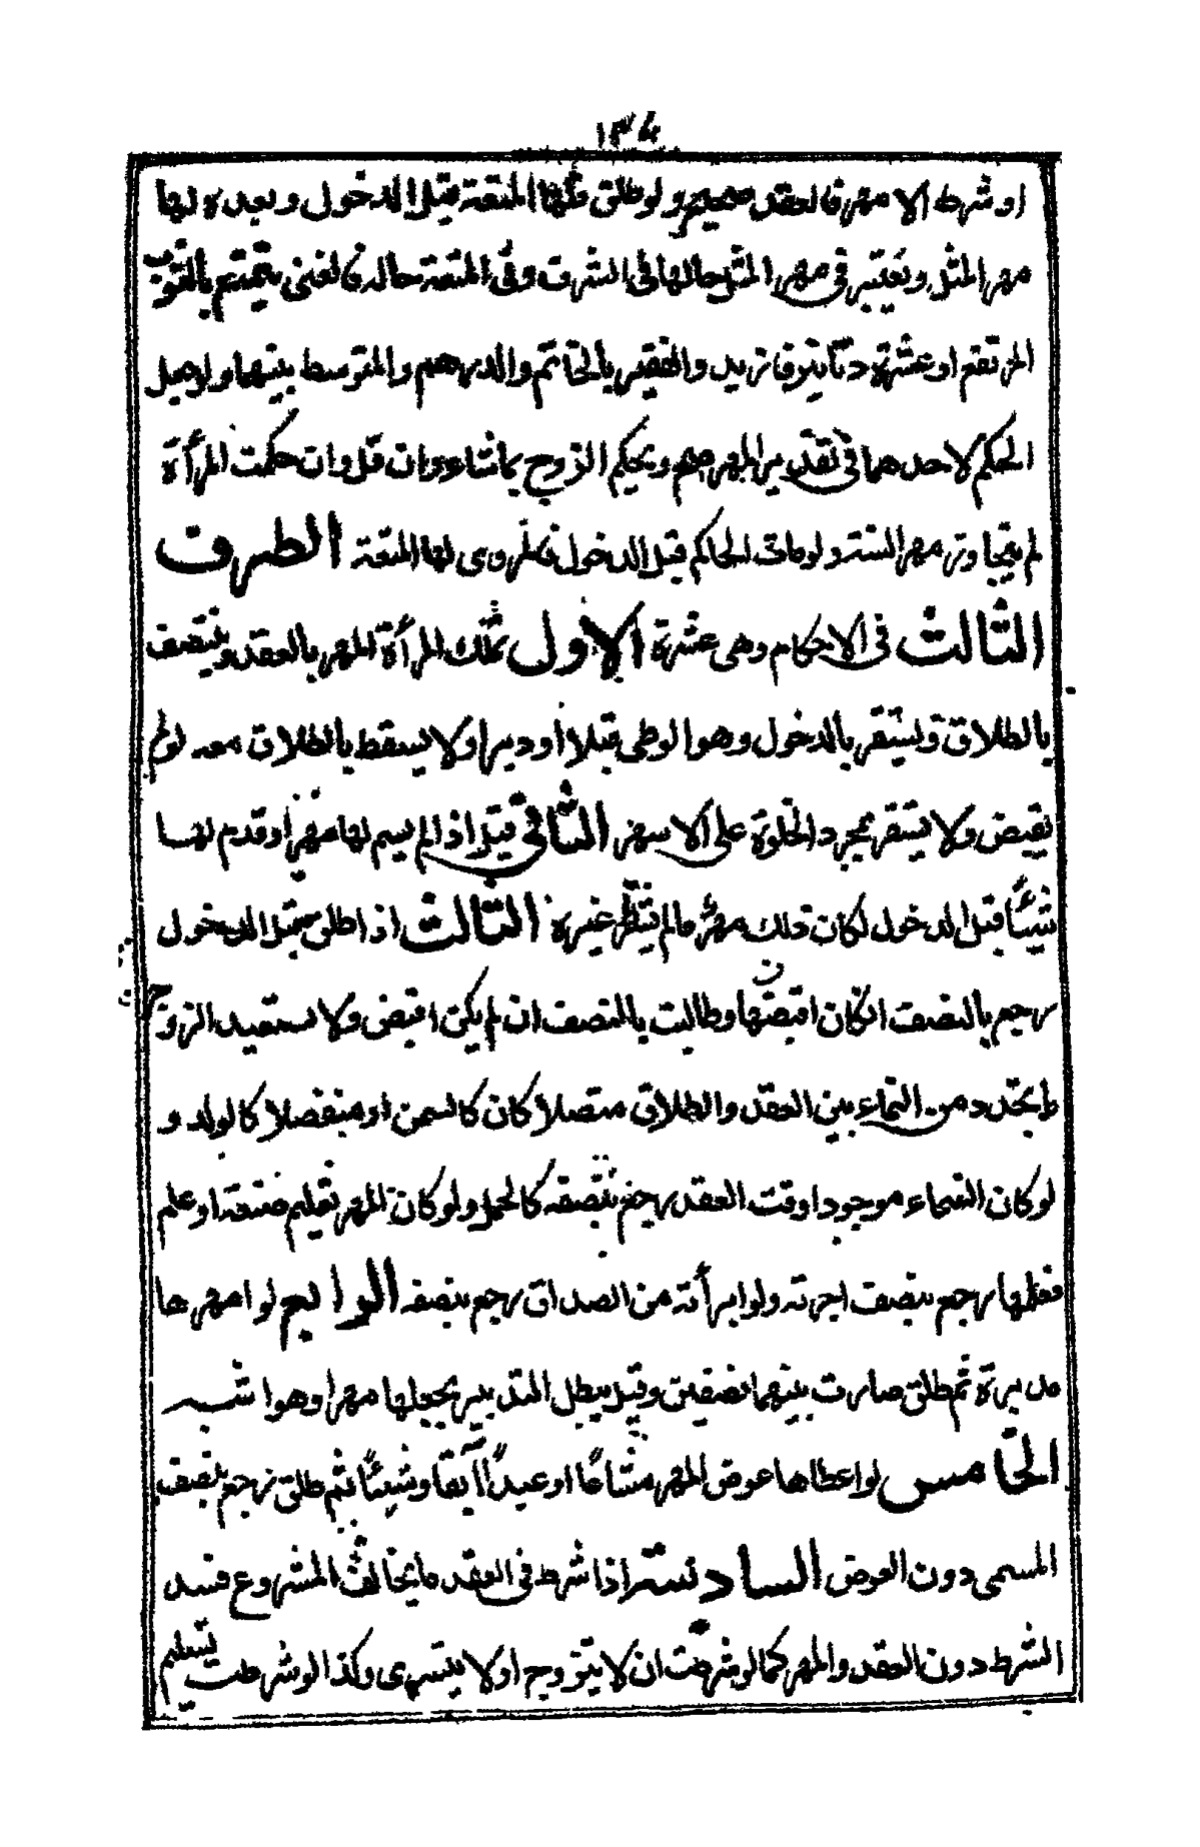 ١٣٤
او شرط الا مهر فالعقد صحيح ولو طلق فلها المتعة قبل الدخول و بعده لها
مهر المثل ويعتبر في مهر المثل حالها في الشرف وفي المتعة حاله فالغني يتمتع بالثوب
المرتفع او عشرة دنانير فازيد والفقير بالخاتم والدرهم والمتوسط بينهما ولو جعل
الحكم لاحدهما في تقدير المهر صح ويحكم الزوج بما شاء وان قل وان حكمت المرأة
لم يتجاوز مهر السنة ولو مات الحاكم قبل الدخول فالمروى لها المتعة الطرف
الثالث في الاحكام وهي عشرة الاول تملك المرأة المهر بالعقد وينتصف
بالطلاق ويستقر بالدخول وهو الوطى قبلا او دبرا ولا يسقط بالطلاق معه لو لم
يقبض ولا يستقر بمجرد الخلوة على الاشهر الثاني قيل اذا لم يسم لها مهرا وقدم لها
شيئًا قبل الدخول كان ذلك مهرًا مالم يشترط غيره الثالث اذا طلق قبل الدخول
رجع بالنصف ان كان اقبضها وطالبت بالنصف ان لم يكن اقبض ولا يستعيد الزوج
ما تجدد من النماء بين العقد والطلاق متصلا كان كالسمن او منفصلا كالولد و
لو كان النماء موجودا وقت العقد رجع بنصفه كالحمل ولو كان المهر تعليم صنعة او علم
فعلمها رجع بنصف اجرته ولو ابرأته من الصداق رجع بنصفه الرابع لو امهرها
مدبرة ثم طلق صارت بينهما نصفين وقيل يبطل التدبير بجعلها مهرا وهو اشبه
الخامس لو اعطاها عوض المهر متاعًا او عبدًا آبقا وشيئًا ثم طلق رجع بنصف
المسمى دون العوض السادس اذا شرط في العقد ما يخالف المشروع فسد
الشرط دون العقد والمهر كما لو شرطت ان لا يتزوج او لا يتسرى وكذا لو شرطت تسليم